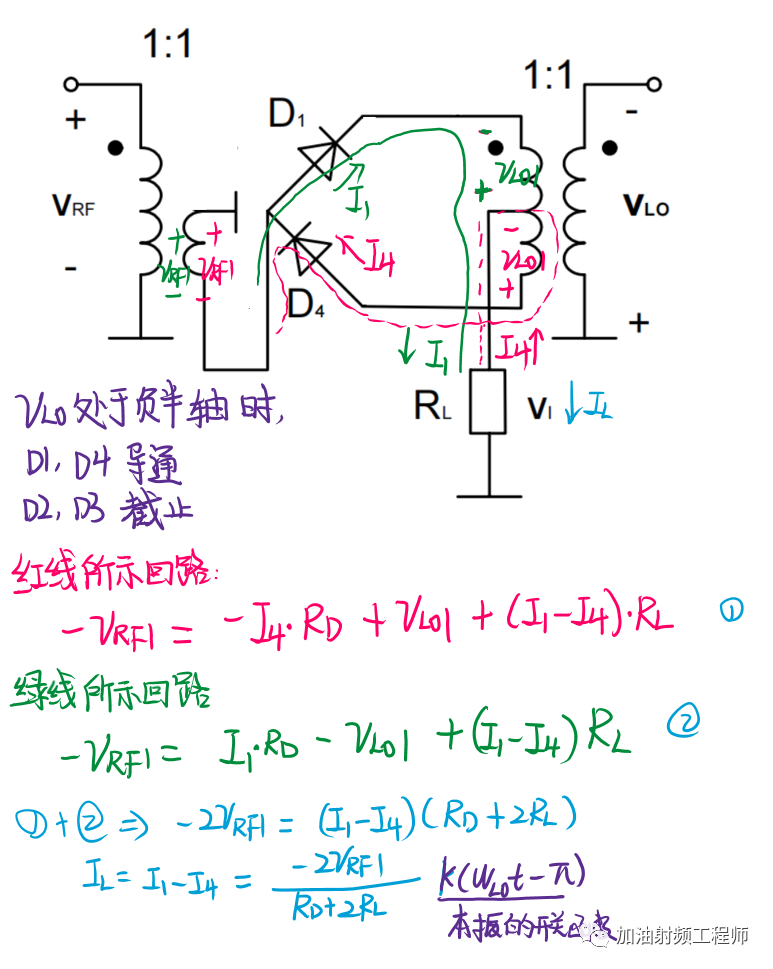 1:1
1:1
+
D₁
-
+
-
V_RF
ν_LO1
+
V_LO
I₁
+
+
ν_RF1
ν_RF1
-
-
-
I4
-
ν_LO1
+
D₄
+
I₁
I4
R_L
V_I
I_L
ν_LO处于负半轴时,
D1, D4 导通
D2, D3 截止
红线所示回路:
-ν_RF1 = -I4·R_D + ν_LO1 + (I₁-I4)·R_L ①
绿线所示回路
-ν_RF1 = I₁·R_D - ν_LO1 + (I₁-I4)R_L ②
①+② ⇒ -2ν_RF1 = (I₁-I4)(R_D+2R_L)
I_L = I₁-I4 = -2ν_RF1 / (R_D+2R_L) K(ω_LO t-π)
本振的开关函数
加油射频工程师